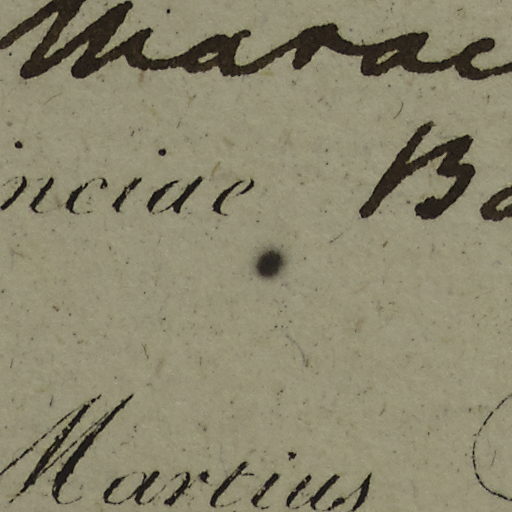 Marac
inciae Ba
Martius